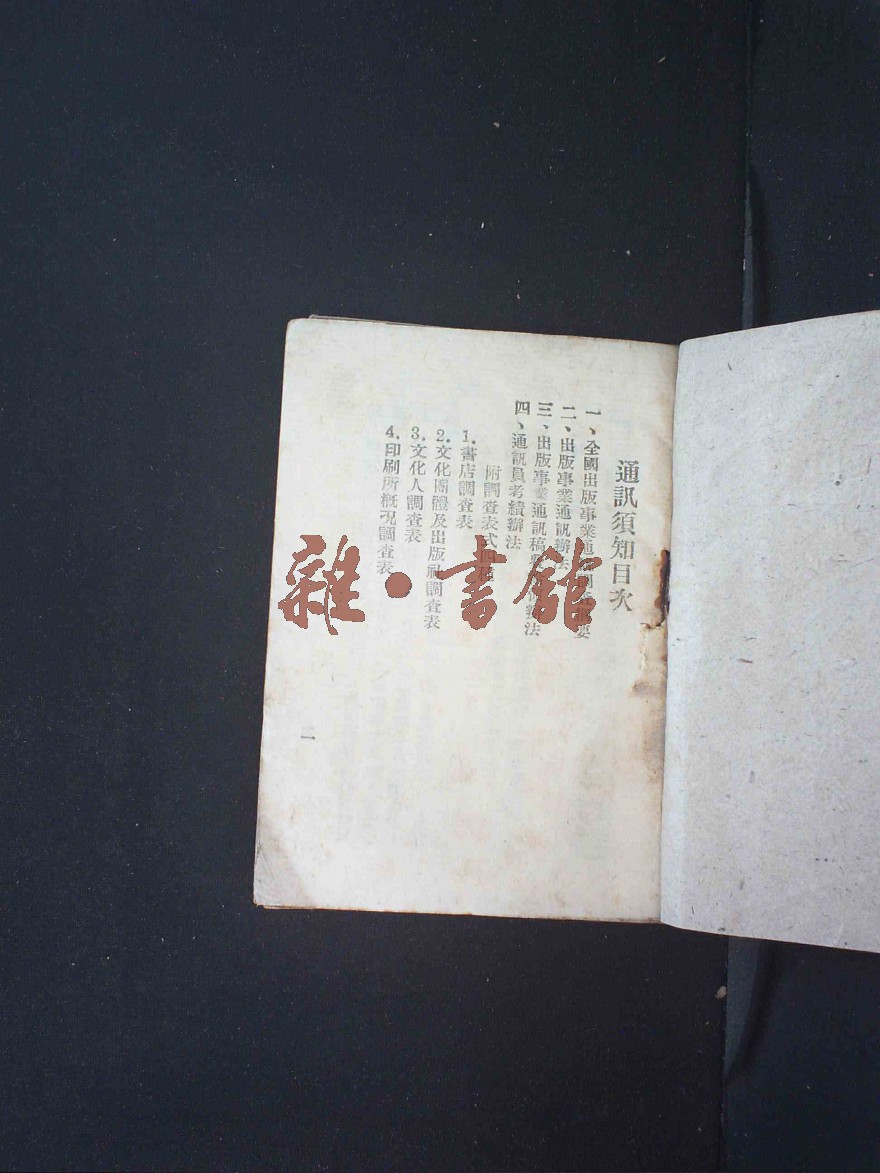 通訊須知目次
一、全國出版事業通訊網 要
二、出版事業通訊辦法
三、出版事業通訊稿 辦法
四、通訊員考績辦法
附調查表式四種
1.書店調查表
2.文化團體及出版社調查表
3.文化人調查表
4.印刷所概況調查表
二
雜·書館